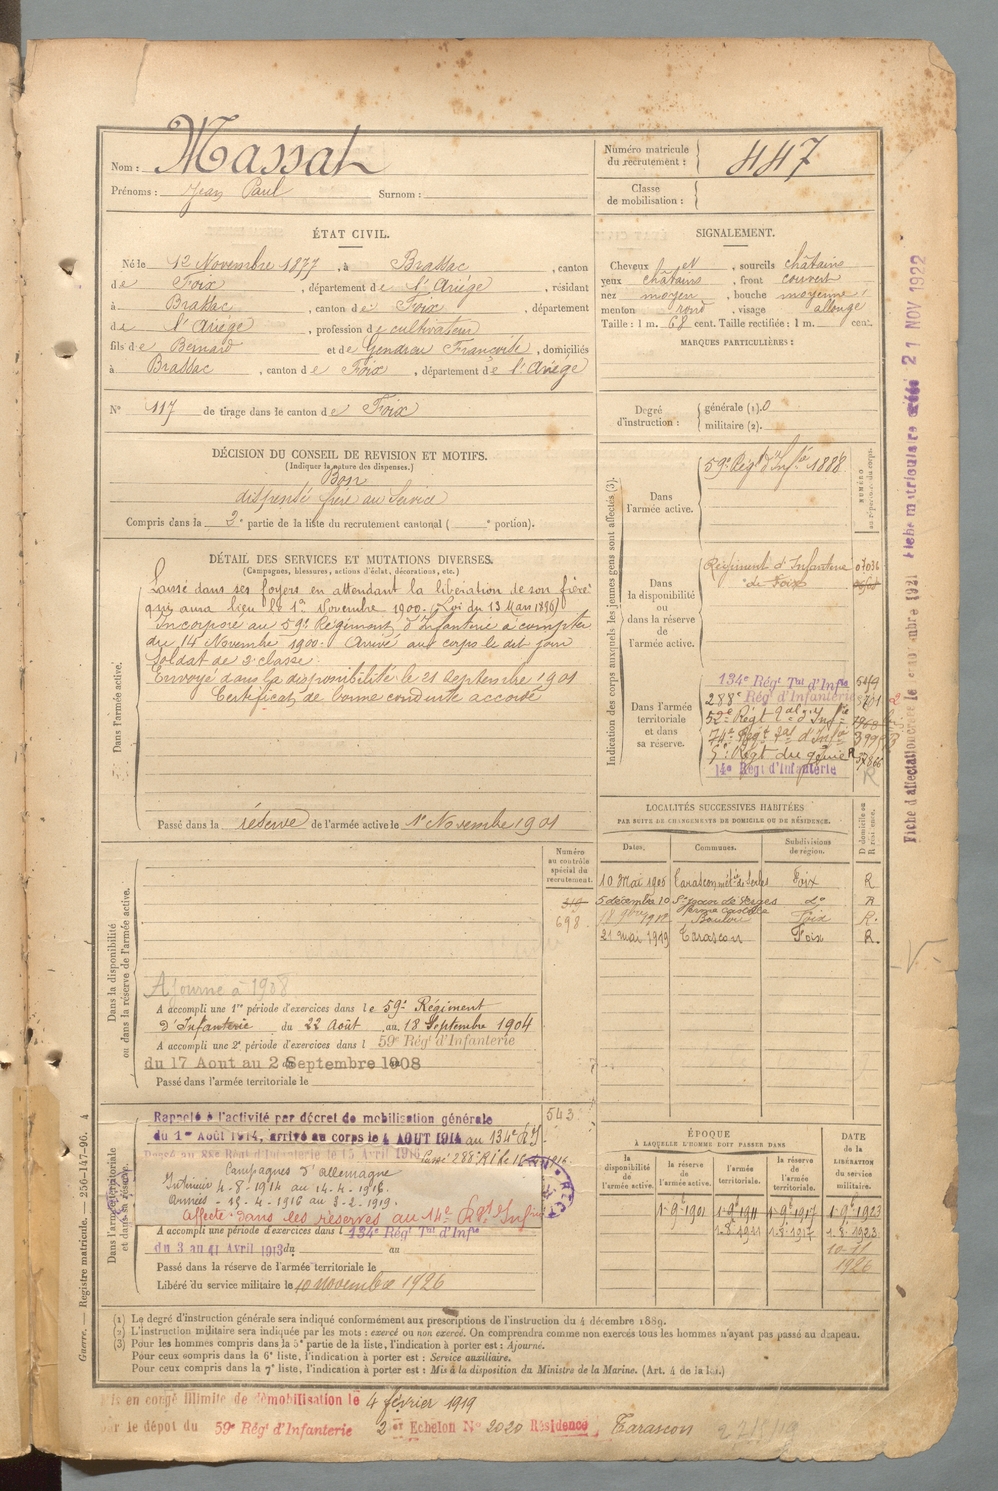 Nom : Massat
Prénoms : Jean Paul Surnom :
Numéro matricule du recrutement : 447
Classe de mobilisation :
ÉTAT CIVIL.
Né le 12 Novembre 1877, à Brassac, canton
de Foix, département de l'Ariège, résidant
à Brassac, canton de Foix, département
de l'Ariège, profession de cultivateur
fils de Bernard et de Françoise, domiciliés
à Brassac, canton de Foix, département de l'Ariège
N° 117 de tirage dans le canton de Foix
SIGNALEMENT.
Cheveux et, sourcils châtains
yeux châtains, front couvert
nez moyen, bouche moyenne
menton rond, visage allongé
Taille : 1 m. 68 cent. Taille rectifiée : 1 m. cent.
MARQUES PARTICULIÈRES :
Degré d'instruction : générale (1). 0
militaire (2).
DÉCISION DU CONSEIL DE REVISION ET MOTIFS.
(Indiquer la nature des dispenses.)
Bon
dispensé frère au Service
Compris dans la 2e partie de la liste du recrutement cantonal ( e portion).
DÉTAIL DES SERVICES ET MUTATIONS DIVERSES.
(Campagnes, blessures, actions d'éclat, décorations, etc.)
Dans l'armée active.
Laissé dans ses foyers en attendant la libération de son frère
qui aura lieu le 1er Novembre 1900. (Loi du 13 Mars 1896)
Incorporé au 59e Régiment d'Infanterie à compter
du 14 Novembre 1900. Arrivé au corps le dit jour
Soldat de 2e classe.
Envoyé dans la disponibilité le 21 Septembre 1901
Certificat de bonne conduite accordé
Passé dans la réserve de l'armée active le 1er Novembre 1901
Indication des corps auxquels les jeunes gens sont affectés (3).
NUMÉRO au répertoire du corps.
Dans l'armée active.
59e Régt d'Infie 1888
Dans la disponibilité ou dans la réserve de l'armée active.
Régiment d'Infanterie 07036
de Foix
Dans l'armée territoriale et dans sa réserve.
134e Régt Tal d'Infie
288e Rég' d'Infanterie
52e Régt d'Infie
74e Régt d'Infie
5e Régt du génie R
14e Régt d'Infanterie R
LOCALITÉS SUCCESSIVES HABITÉES
PAR SUITE DE CHANGEMENTS DE DOMICILE OU DE RÉSIDENCE.
Dates. Communes. Subdivisions de région. D domicile ou R résidence.
10 Mai 1905 Tarascon Foix R
5 décembre 10 do R
1912 Foix R.
21 mai 1919 Tarascon Foix R.
Dans la disponibilité ou dans la réserve de l'armée active.
Numéro au contrôle spécial du recrutement.
698
Ajourné à 1908
A accompli une 1re période d'exercices dans le 59e Régiment
d'Infanterie du 22 Août au 18 Septembre 1904
A accompli une 2e période d'exercices dans l 59e Régt d'Infanterie
du 17 Aout au 2 Septembre 1908
Passé dans l'armée territoriale le
Dans l'armée territoriale et dans sa réserve.
543
Rappelé à l'activité par décret de mobilisation générale
du 1er Août 1914, arrivé au corps le 4 AOUT 1914 au 134e R.I.
Passé au 288e Rég d'Infanterie le 15 Avril 1916
Campagnes d'Allemagne
Intérieur 4-8-1914 au 14-4-1916.
Armées - 15-4-1916 au 3-2-1919.
Affecté dans les réserves au 14e Rgt d'Infrie
A accompli une période d'exercices dans l 134e Régt Tal d'Infie
du 3 au 11 Avril 1913 du au
Passé dans la réserve de l'armée territoriale le
Libéré du service militaire le 10 novembre 1926
ÉPOQUE
À LAQUELLE L'HOMME DOIT PASSER DANS
la disponibilité de l'armée active. la réserve de l'armée active. l'armée territoriale. la réserve de l'armée territoriale.
DATE de la LIBÉRATION du service militaire.
1-9bre 1901 1-9bre 1911 1-9bre 1917 1-9bre 1923
1.8.1911 1.8.1917 1.8.1923
10-11
1926
(1) Le degré d'instruction générale sera indiqué conformément aux prescriptions de l'instruction du 4 décembre 1889.
(2) L'instruction militaire sera indiquée par les mots : exercé ou non exercé. On comprendra comme non exercés tous les hommes n'ayant pas passé au drapeau.
(3) Pour les hommes compris dans la 5e partie de la liste, l'indication à porter est : Ajourné.
Pour ceux compris dans la 6e liste, l'indication à porter est : Service auxiliaire.
Pour ceux compris dans la 7e liste, l'indication à porter est : Mis à la disposition du Ministre de la Marine. (Art. 4 de la loi.)
Guerre. — Registre matricule. — 256-147-96. 4
en congé illimité de démobilisation le 4 février 1919
le dépôt du 59e Régt d'Infanterie 2e Echelon N° 2020 Résidence Tarascon 27/5/19
Fiche matriculaire créée 21 NOV 1922